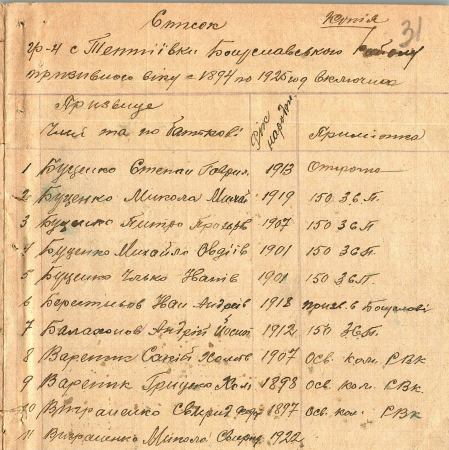 Список Копія 31
гр-н с Тептіївки Богуславського Району
призивного віку с 1894 по 1926 год включно
Призвище
Имя та по батькові Рік народж. Примітка
1 Буценко Степан Гаврил 1913
2 Буценко Микола Михай 1919 150 З.С.П.
3 Буценко Петро 1907 150 ЗСП
4 Буценко Михайло Овдіїв 1901 150 ЗСП
5 Буценко Ілько Іванів 1901 150 ЗСП.
6 Берестньов Иван Андріїв 1918 призв. в Богуславі
7 Балахонов Андрій Йосип 1912 150 ЗСП
8 Варетик 1907 осв. ком. РВк
9 Варетик Грицько Хом 1898 осв. ком. РВк.
10 Вітраненко Свирид 1897 осв. ком. РВк
11 Вітраненко Микола Свирид 1922